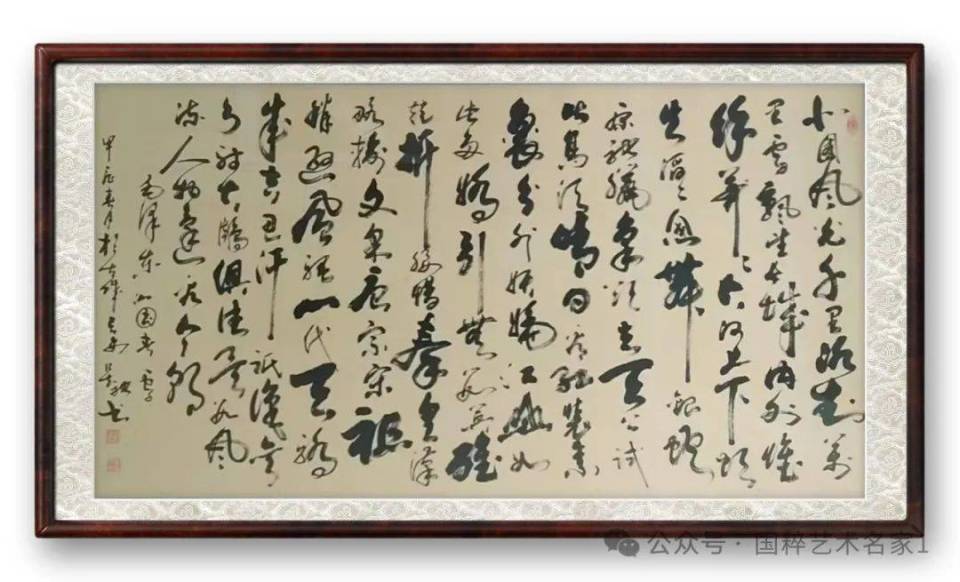 北国风光千里冰封万
里雪飘望长城内外惟
馀莽莽大河上下顿
失滔滔山舞银蛇
原驰腊象欲与天公试
比高须晴日看红装素
裹分外妖娆江山如
此多娇引无数英雄
竞折腰惜秦皇汉
略输文采唐宗宋祖
稍逊风骚一代天骄
成吉思汗祇识弯
弓射大雕俱往矣数风
流人物还看今朝
毛泽东沁园春雪
甲辰春月於
公众号·国粹艺术名家1